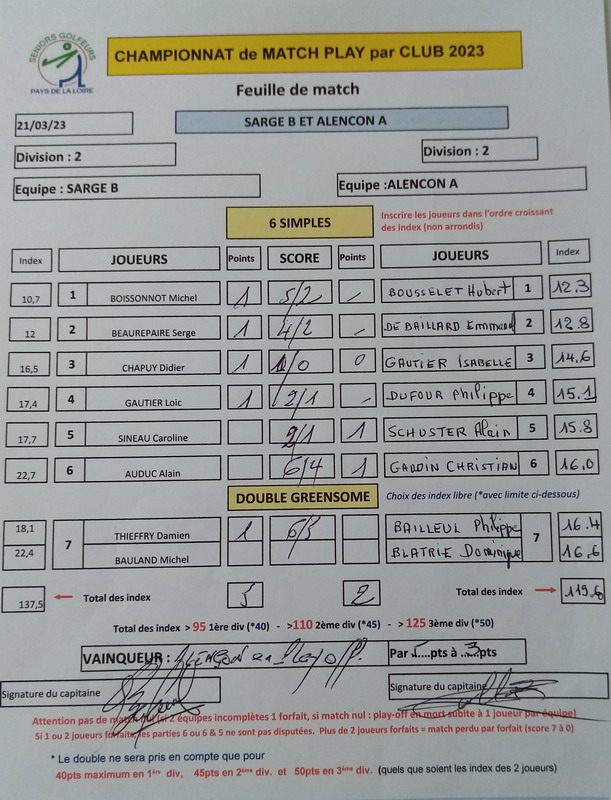 SENIORS GOLFEURS
PAYS DE LA LOIRE
CHAMPIONNAT de MATCH PLAY par CLUB 2023
Feuille de match
21/03/23
SARGE B ET ALENCON A
Division : 2
Division : 2
Equipe : SARGE B
Equipe :ALENCON A
6 SIMPLES
Inscrire les joueurs dans l'ordre croissant
des index (non arrondis)
Index JOUEURS Points SCORE Points JOUEURS Index
10,7 1 BOISSONNOT Michel 1 5/2 - BOUSSELET Hubert 1 12.3
12 2 BEAUREPAIRE Serge 1 4/2 - DE BAILLARD Emmanuel 2 12.8
16,5 3 CHAPUY Didier 1 1/0 0 GAUTIER ISABELLE 3 14.6
17,4 4 GAUTIER Loic 1 2/1 - DUFOUR Philippe 4 15.1
17,7 5 SINEAU Caroline 2/1 1 SCHUSTER Alain 5 15.8
22,7 6 AUDUC Alain 6/4 1 CHRISTIAN 6 16.0
DOUBLE GREENSOME
Choix des index libre (*avec limite ci-dessous)
18,1 7 THIEFFRY Damien 1 BAILLEUL Philippe 7 16.4
22,4 BAULAND Michel BLATRIE Dominique 16,6
137,5 Total des index 2 Total des index 119.6
Total des index >95 1ère div (*40) - >110 2ème div (*45) - > 125 3ème div (*50)
VAINQUEUR : ALENCON en Play off. Par pts à pts
Signature du capitaine
Signature du capitaine
Attention pas de match nul (si 2 équipes incomplètes 1 forfait, si match nul : play-off en mort subite à 1 joueur par équipe)
Si 1 ou 2 joueurs forfaits les parties 6 ou 6 & 5 ne sont pas disputées. Plus de 2 joueurs forfaits = match perdu par forfait (score 7 à 0)
* Le double ne sera pris en compte que pour
40pts maximum en 1ère div, 45pts en 2ème div. et 50pts en 3ème div. (quels que soient les index des 2 joueurs)